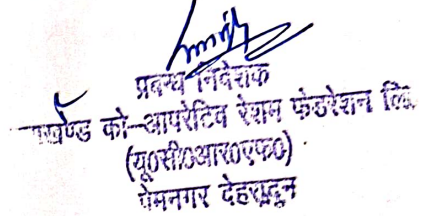 प्रबन्ध निदेशक
को-आपरेटिव रेशम फेडरेशन लि०
(यू०सी०आर०एफ०)
प्रेमनगर देहरादून